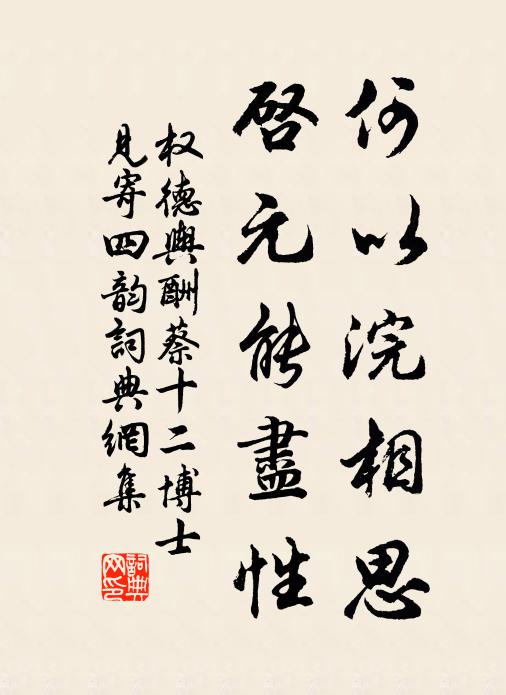 何以浣相思
啓元能盡性
权德輿酬蔡十二博士
見寄四韵詞典網集
詞典
网印